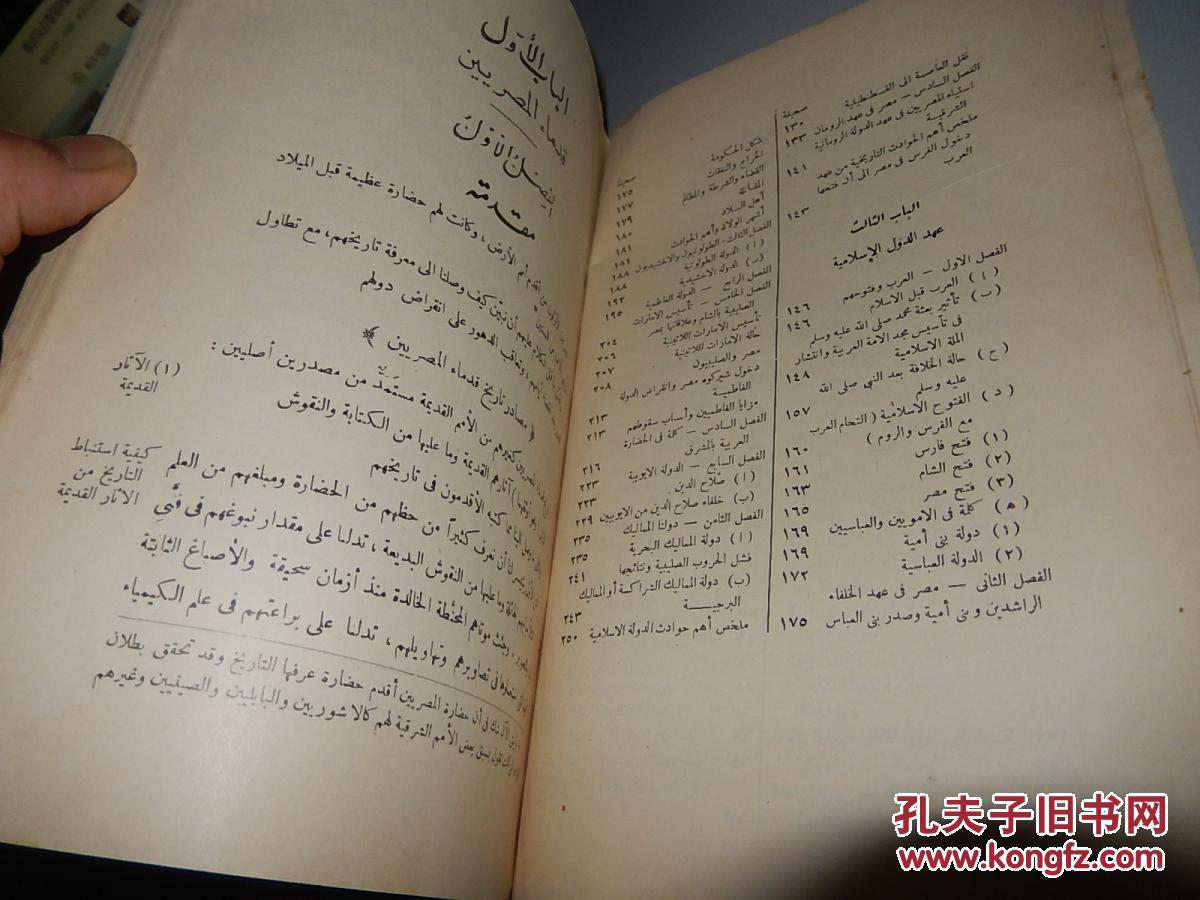 صحيفة
نقل العاصمة الى القسطنطينية ١٣٠
الفصل السادس — مصر فى عهد الرومان ١٣٣
استياء المصريين فى عهد الدولة الرومانية
الشرقية
ملخص أهم الحوادث التاريخية من عهد ١٤١
دخول الفرس فى مصر الى أن فتحها
العرب ١٤٣
الباب الثالث
عهد الدول الإسلامية
الفصل الاول — العرب وفتوحهم ١٤٦
(ا) العرب قبل الاسلام ١٤٦
(ب) تأثير بعثة محمد صلى الله عليه وسلم
فى تأسيس مجد الامة العربية وانتشار
الملة الاسلامية ١٤٨
(ج) حالة الخلافة بعد النبى صلى الله
عليه وسلم ١٥٧
(د) الفتوح الاسلامية (التحام العرب
مع الفرس والروم) ١٦٠
(١) فتح فارس ١٦١
(٢) فتح الشام ١٦٣
(٣) فتح مصر ١٦٥
(ه) كلمة فى الامويين والعباسيين ١٦٩
(١) دولة بنى أمية ١٦٩
(٢) الدولة العباسية ١٧٢
الفصل الثانى — مصر فى عهد الخلفاء
الراشدين وبنى أمية وصدر بنى العباس ١٧٥
صحيفة
شكل الحكومة ١٧٥
الخراج والنفقات ١٧٧
القضاء والشرطة والمظالم ١٧٩
أهل البلاد ١٨٠
أشهر الولاة وأهم الحوادث ١٨١
الفصل الثالث — الطولونيون والاخشيديون ١٨١
(ا) الدولة الطولونية ١٨٨
(ب) الدولة الاخشيدية ١٨٨
الفصل الرابع — الدولة الفاطمية ١٩٣
الفصل الخامس — تأسيس الامارات ١٩٥
الصليبية بالشام وعلاقتها بمصر
تأسيس الامارات اللاتينية ٢٠٤
حالة الامارات اللاتينية ٢٠٦
مصر والصليبيون ٢٠٧
دخول شيركوه مصر وانقراض الدولة ٢٠٨
الفاطمية
مزايا الفاطميين وأسباب سقوطهم ٢١٣
الفصل السادس — كلمة فى الحضارة ٢١٣
العربية بالمشرق
الفصل السابع — الدولة الايوبية ٢١٦
(ا) صلاح الدين ٢٢٣
(ب) خلفاء صلاح الدين من الايوبيين ٢٢٣
الفصل الثامن — دولتا المماليك ٢٢٩
(ا) دولة المماليك البحرية ٢٣٥
فشل الحروب الصليبية ونتائجها ٢٣٥
(ب) دولة المماليك الشراكسة أو المماليك ٢٤١
البرجية ٢٤٣
ملخص أهم حوادث الدولة الاسلامية ٢٥٠
الباب الأول
قدماء المصريين
الفصل الأول
مقدمة
أقدم أمم الأرض، وكانت لهم حضارة عظيمة قبل الميلاد
أن نبين كيف وصلنا الى معرفة تاريخهم، مع تطاول
وتعاقب الدهور على انقراض دولهم
﴿ مصادر تاريخ قدماء المصريين ﴾
كغيرهم من الأمم القديمة مستمد من مصدرين أصليين:
(١) الآثار
القديمة
آثارهم القديمة وما عليها من الكتابة والنقوش
ما كتبه الأقدمون فى تاريخهم
كيفية استنباط
التاريخ من
الآثار القديمة
أن نعرف كثيرا من حظهم من الحضارة ومبلغهم من العلم
وما عليها من النقوش البديعة، تدلنا على مقدار نبوغهم فى فنى
وجثث موتاهم المحنطة الخالدة منذ أزمان سحيقة والأصباغ الثابتة
فى تصاويرهم وتهاويلهم، تدلنا على براعتهم فى علم الكيمياء
الآن شك فى أن حضارة المصريين أقدم حضارة عرفها التاريخ وقد تحقق بطلان
تقول بسبق بعض الأمم الشرقية لهم كالاشوريين والبابليين والصينيين وغيرهم
孔夫子旧书网
www.kongfz.com